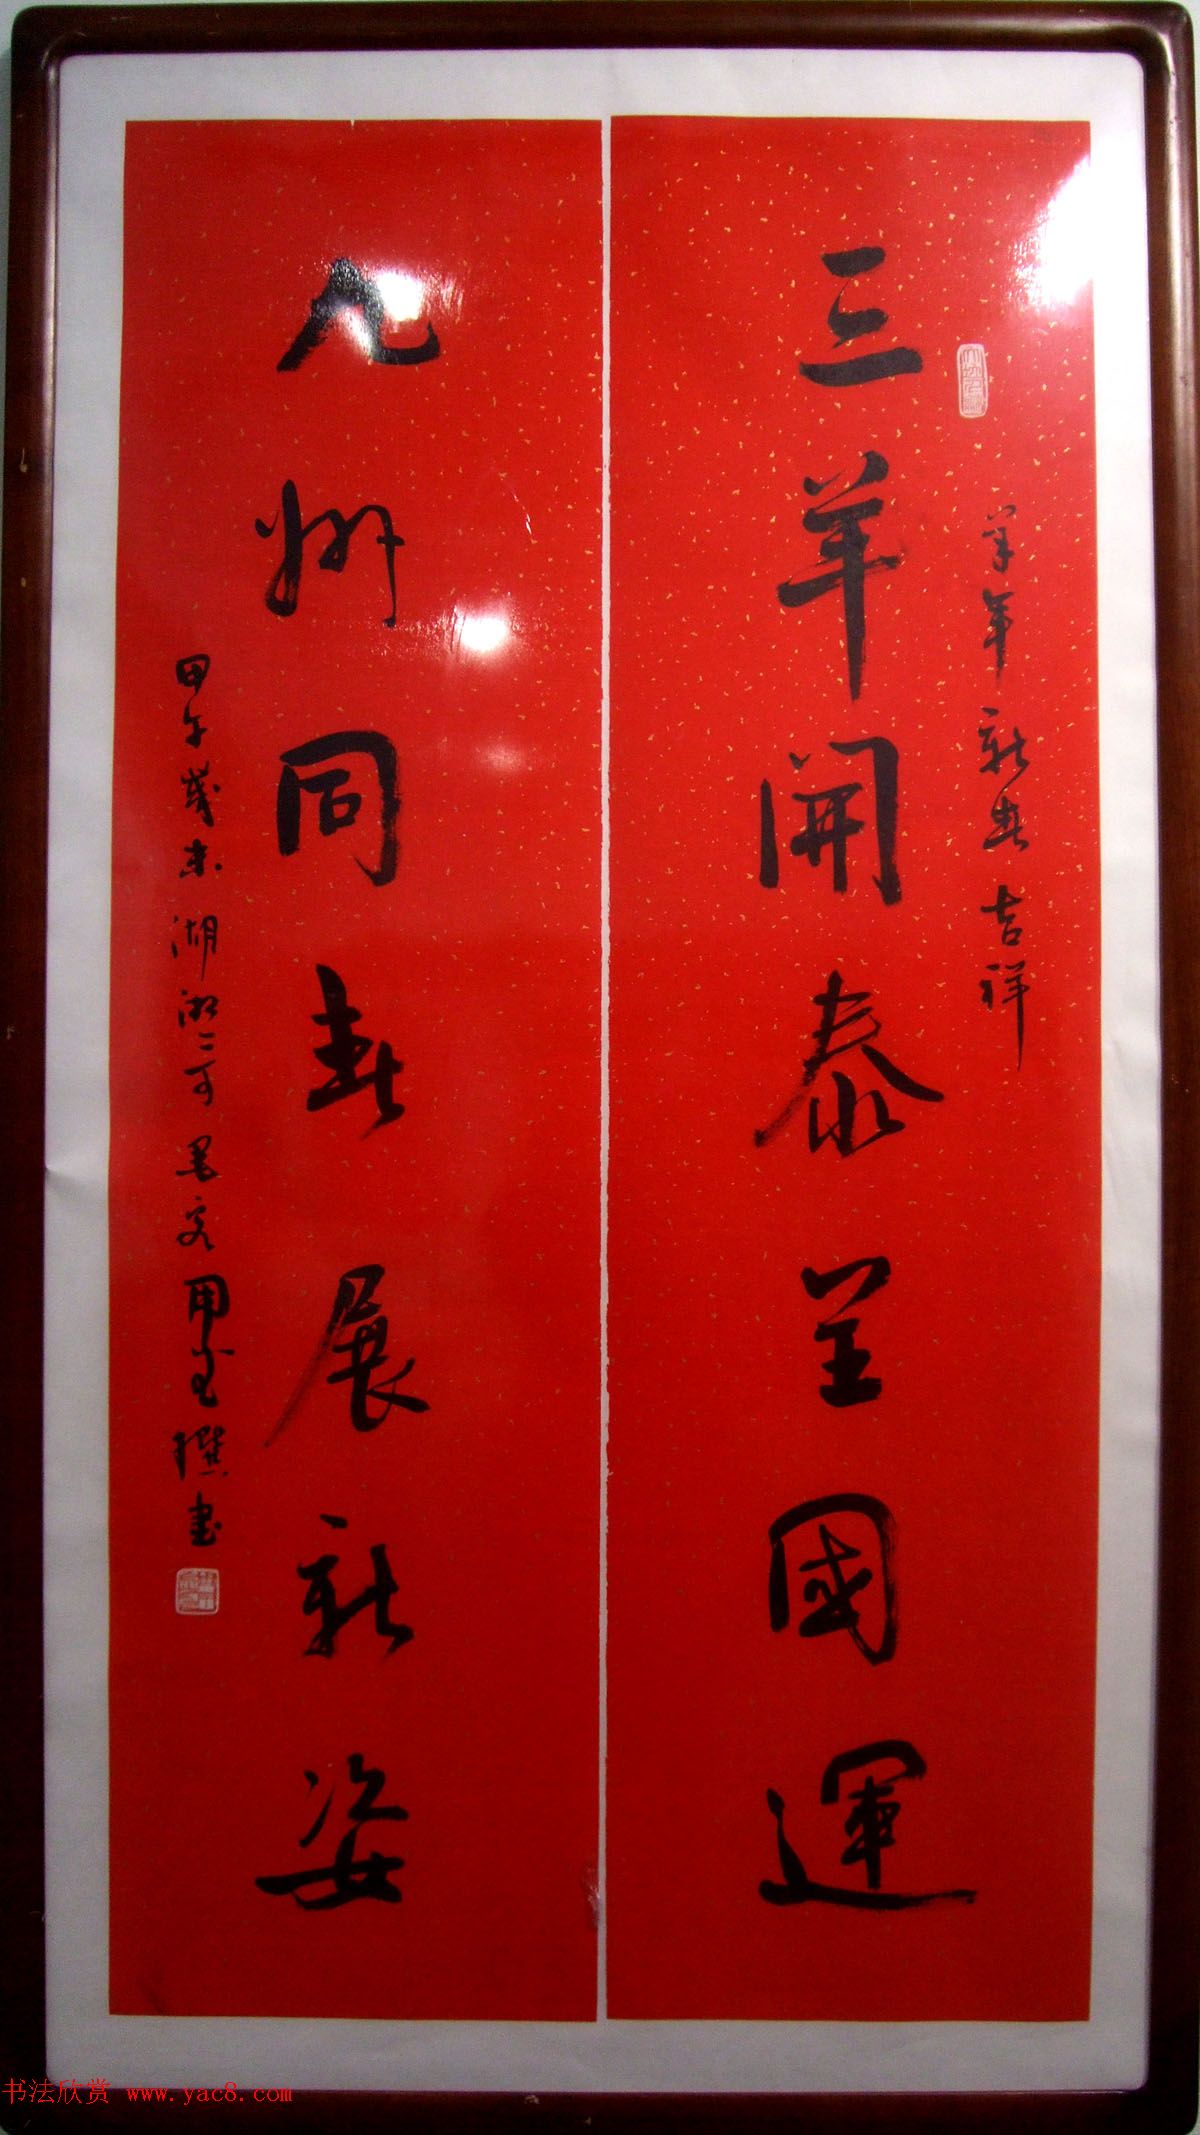 羊年新春吉祥
三羊開泰呈國運
九州同春展新姿
甲午歲末湖湘二可墨客用 撰書
书法欣赏 www.yac8.com